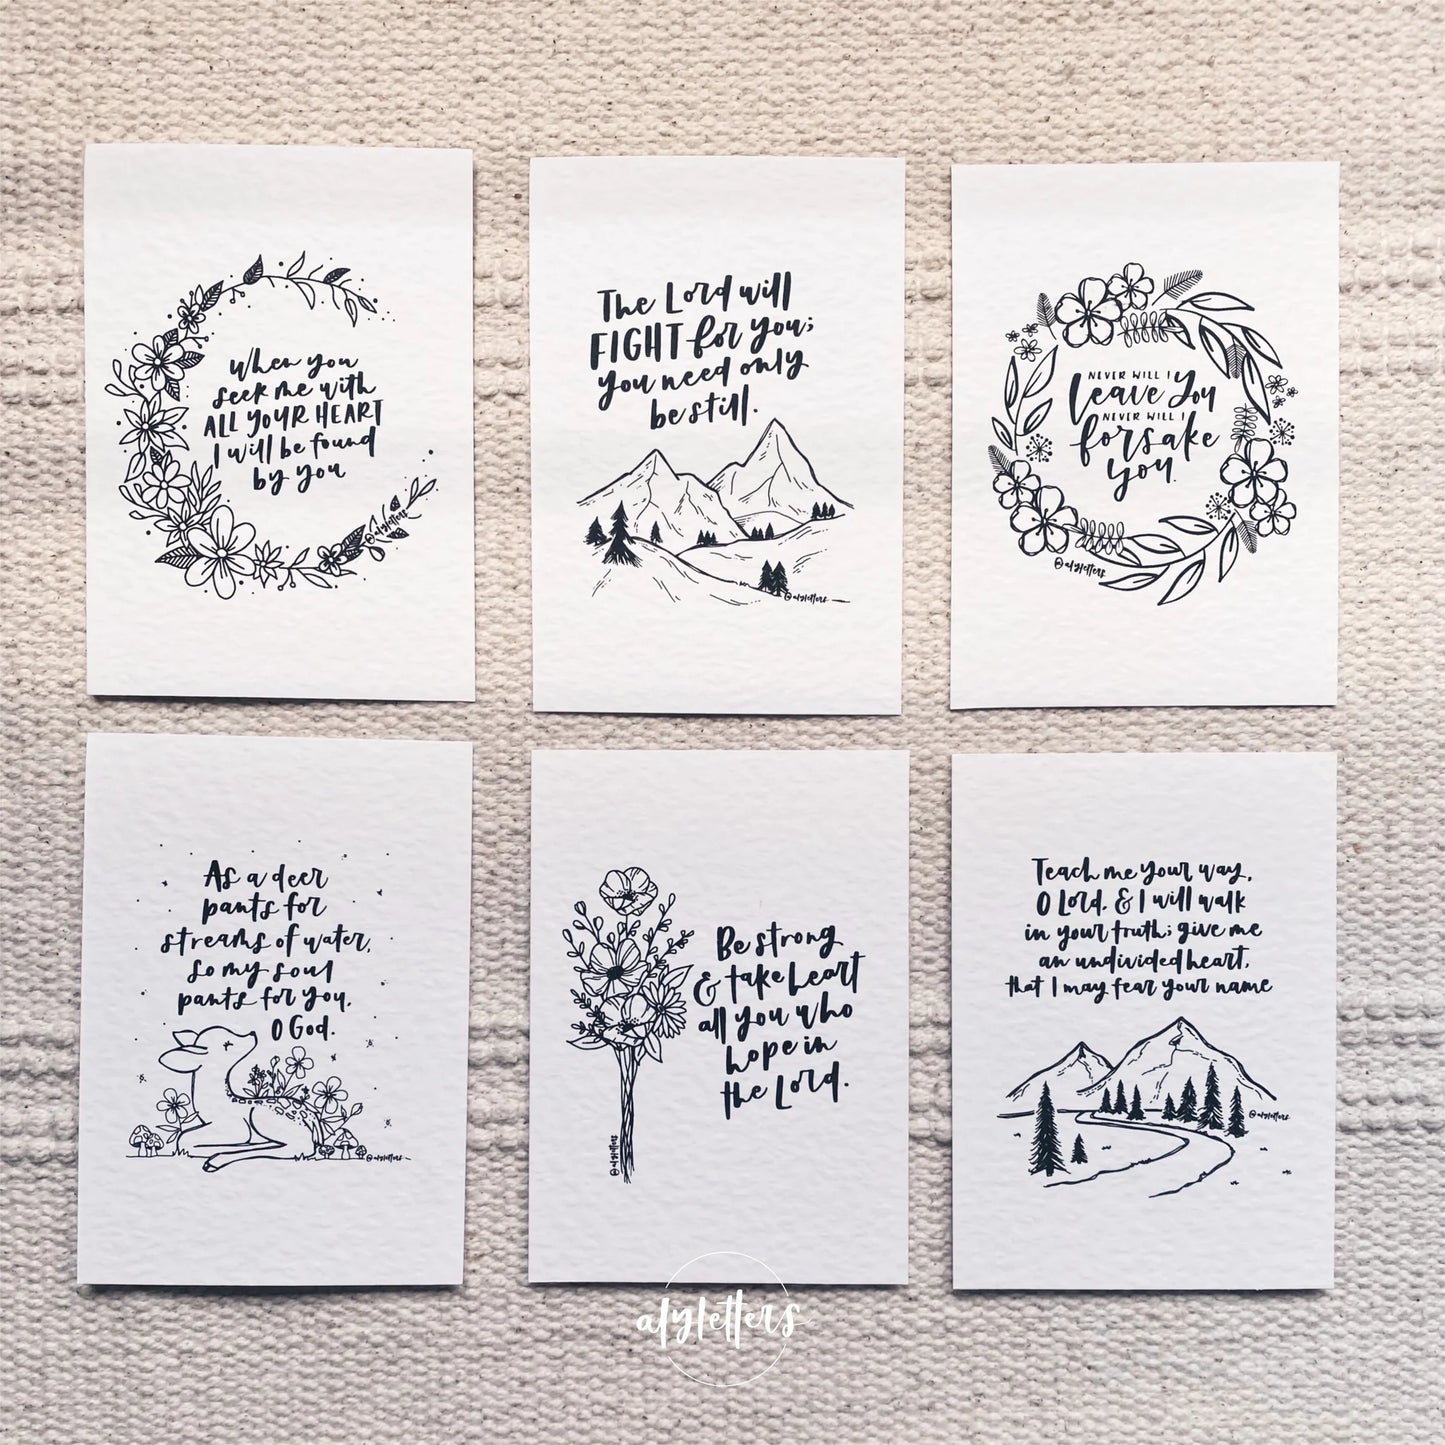 When you
seek me with
ALL YOUR HEART
I will be found
by you
@alyletters
The Lord will
FIGHT for you;
you need only
be still.
@alyletters
NEVER WILL I
leave you
NEVER WILL I
forsake
you.
@alyletters
As a deer
pants for
streams of water,
so my soul
pants for you,
O God.
@alyletters
Be strong
& take heart
all you who
hope in
the Lord.
@alyletters
Teach me your way,
O Lord, & I will walk
in your truth; give me
an undivided heart,
that I may fear your name
@alyletters
alyletters